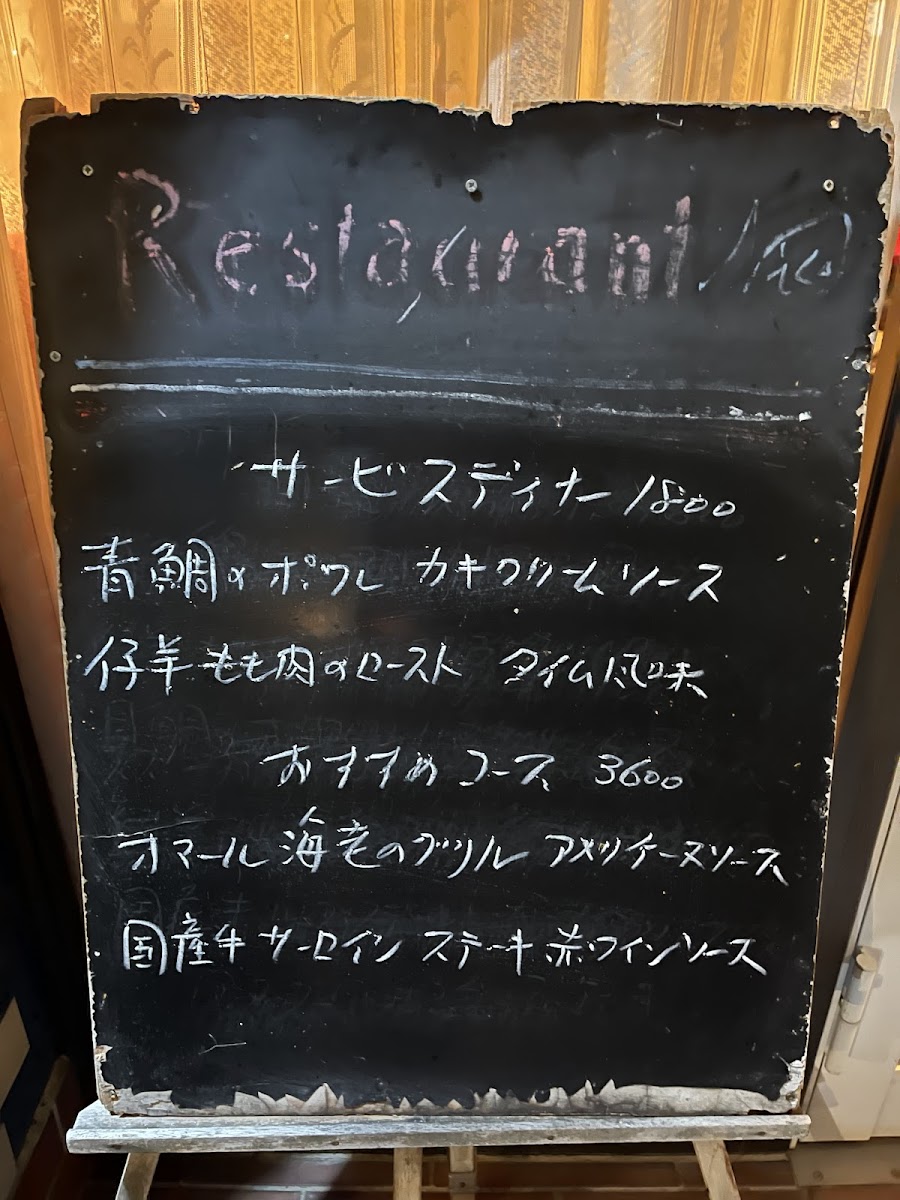 Restaurant 凮
サービスディナー 1800
青鯛のポワレ カキクリームソース
仔羊もも肉のロースト タイム風味
おすすめコース 3600
オマール海老のグリル アメリケーヌソース
国産牛サーロインステーキ赤ワインソース